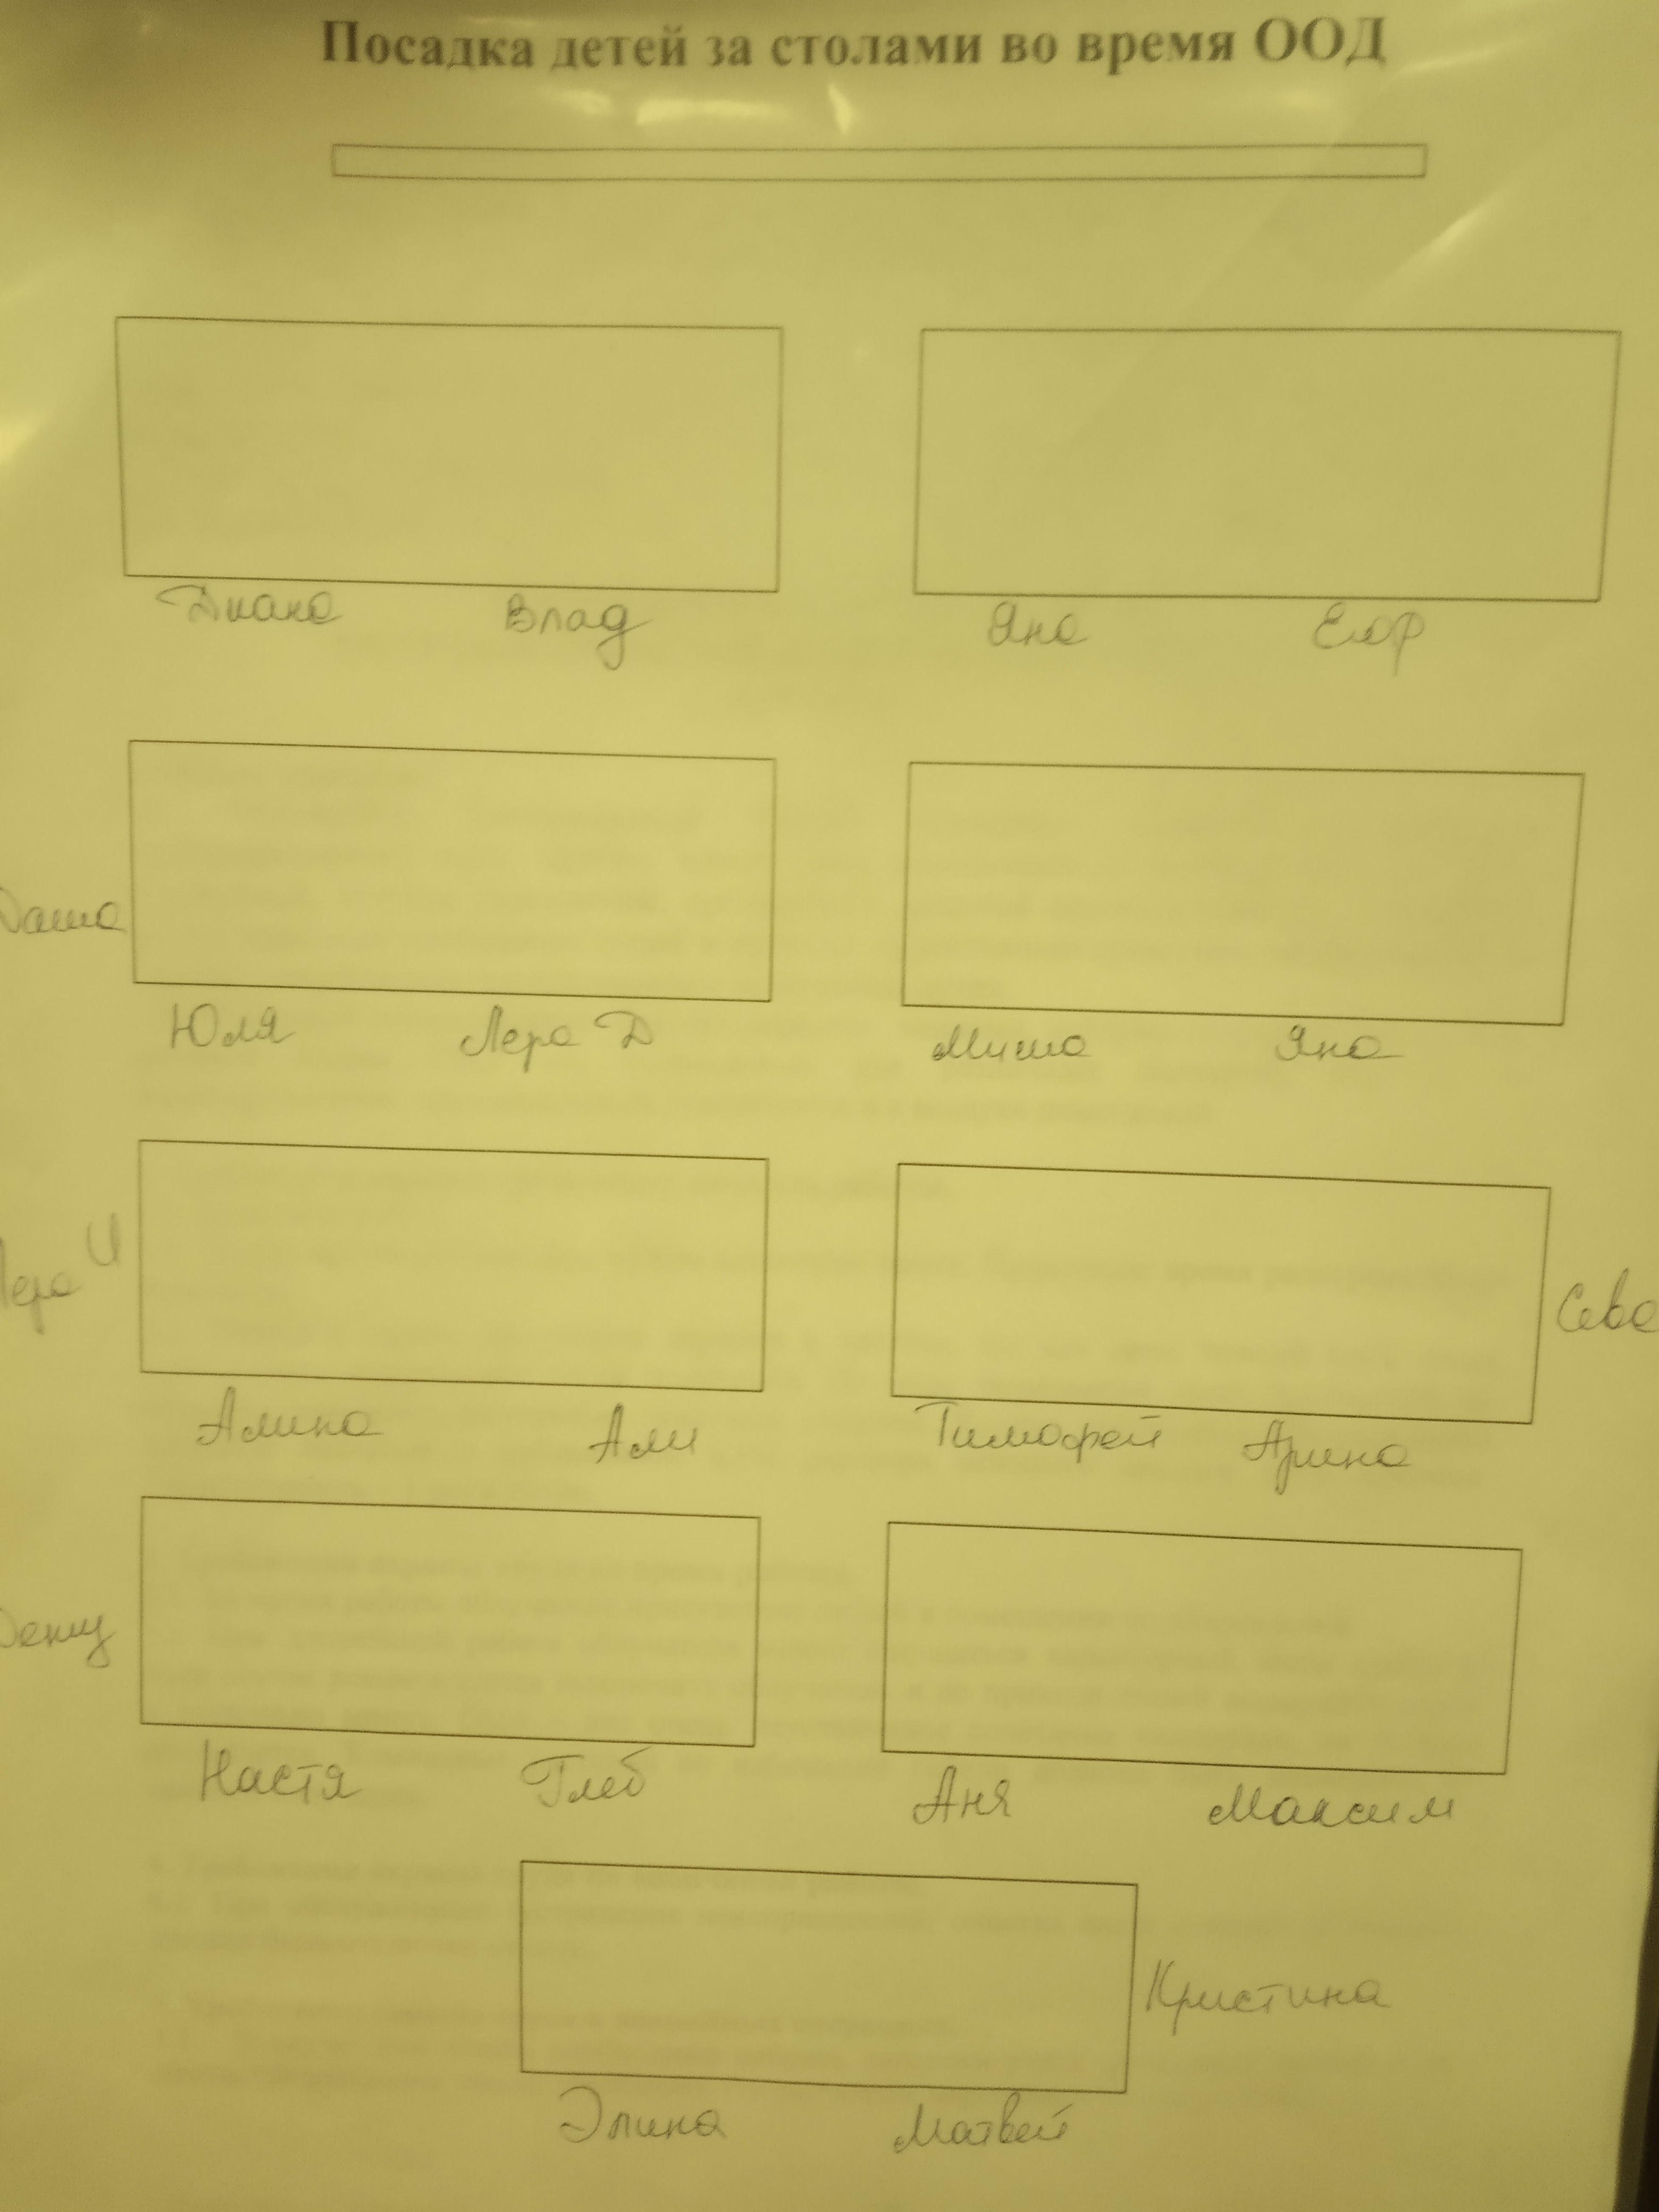 Посадка детей за столами во время ООД
Диана Влад Яна Егор
Даша
Юля Лера Д Миша Яна
Лера И Сева
Алина Али Тимофей Арина
Настя Глеб Аня Максим
Кристина
Элина Матвей